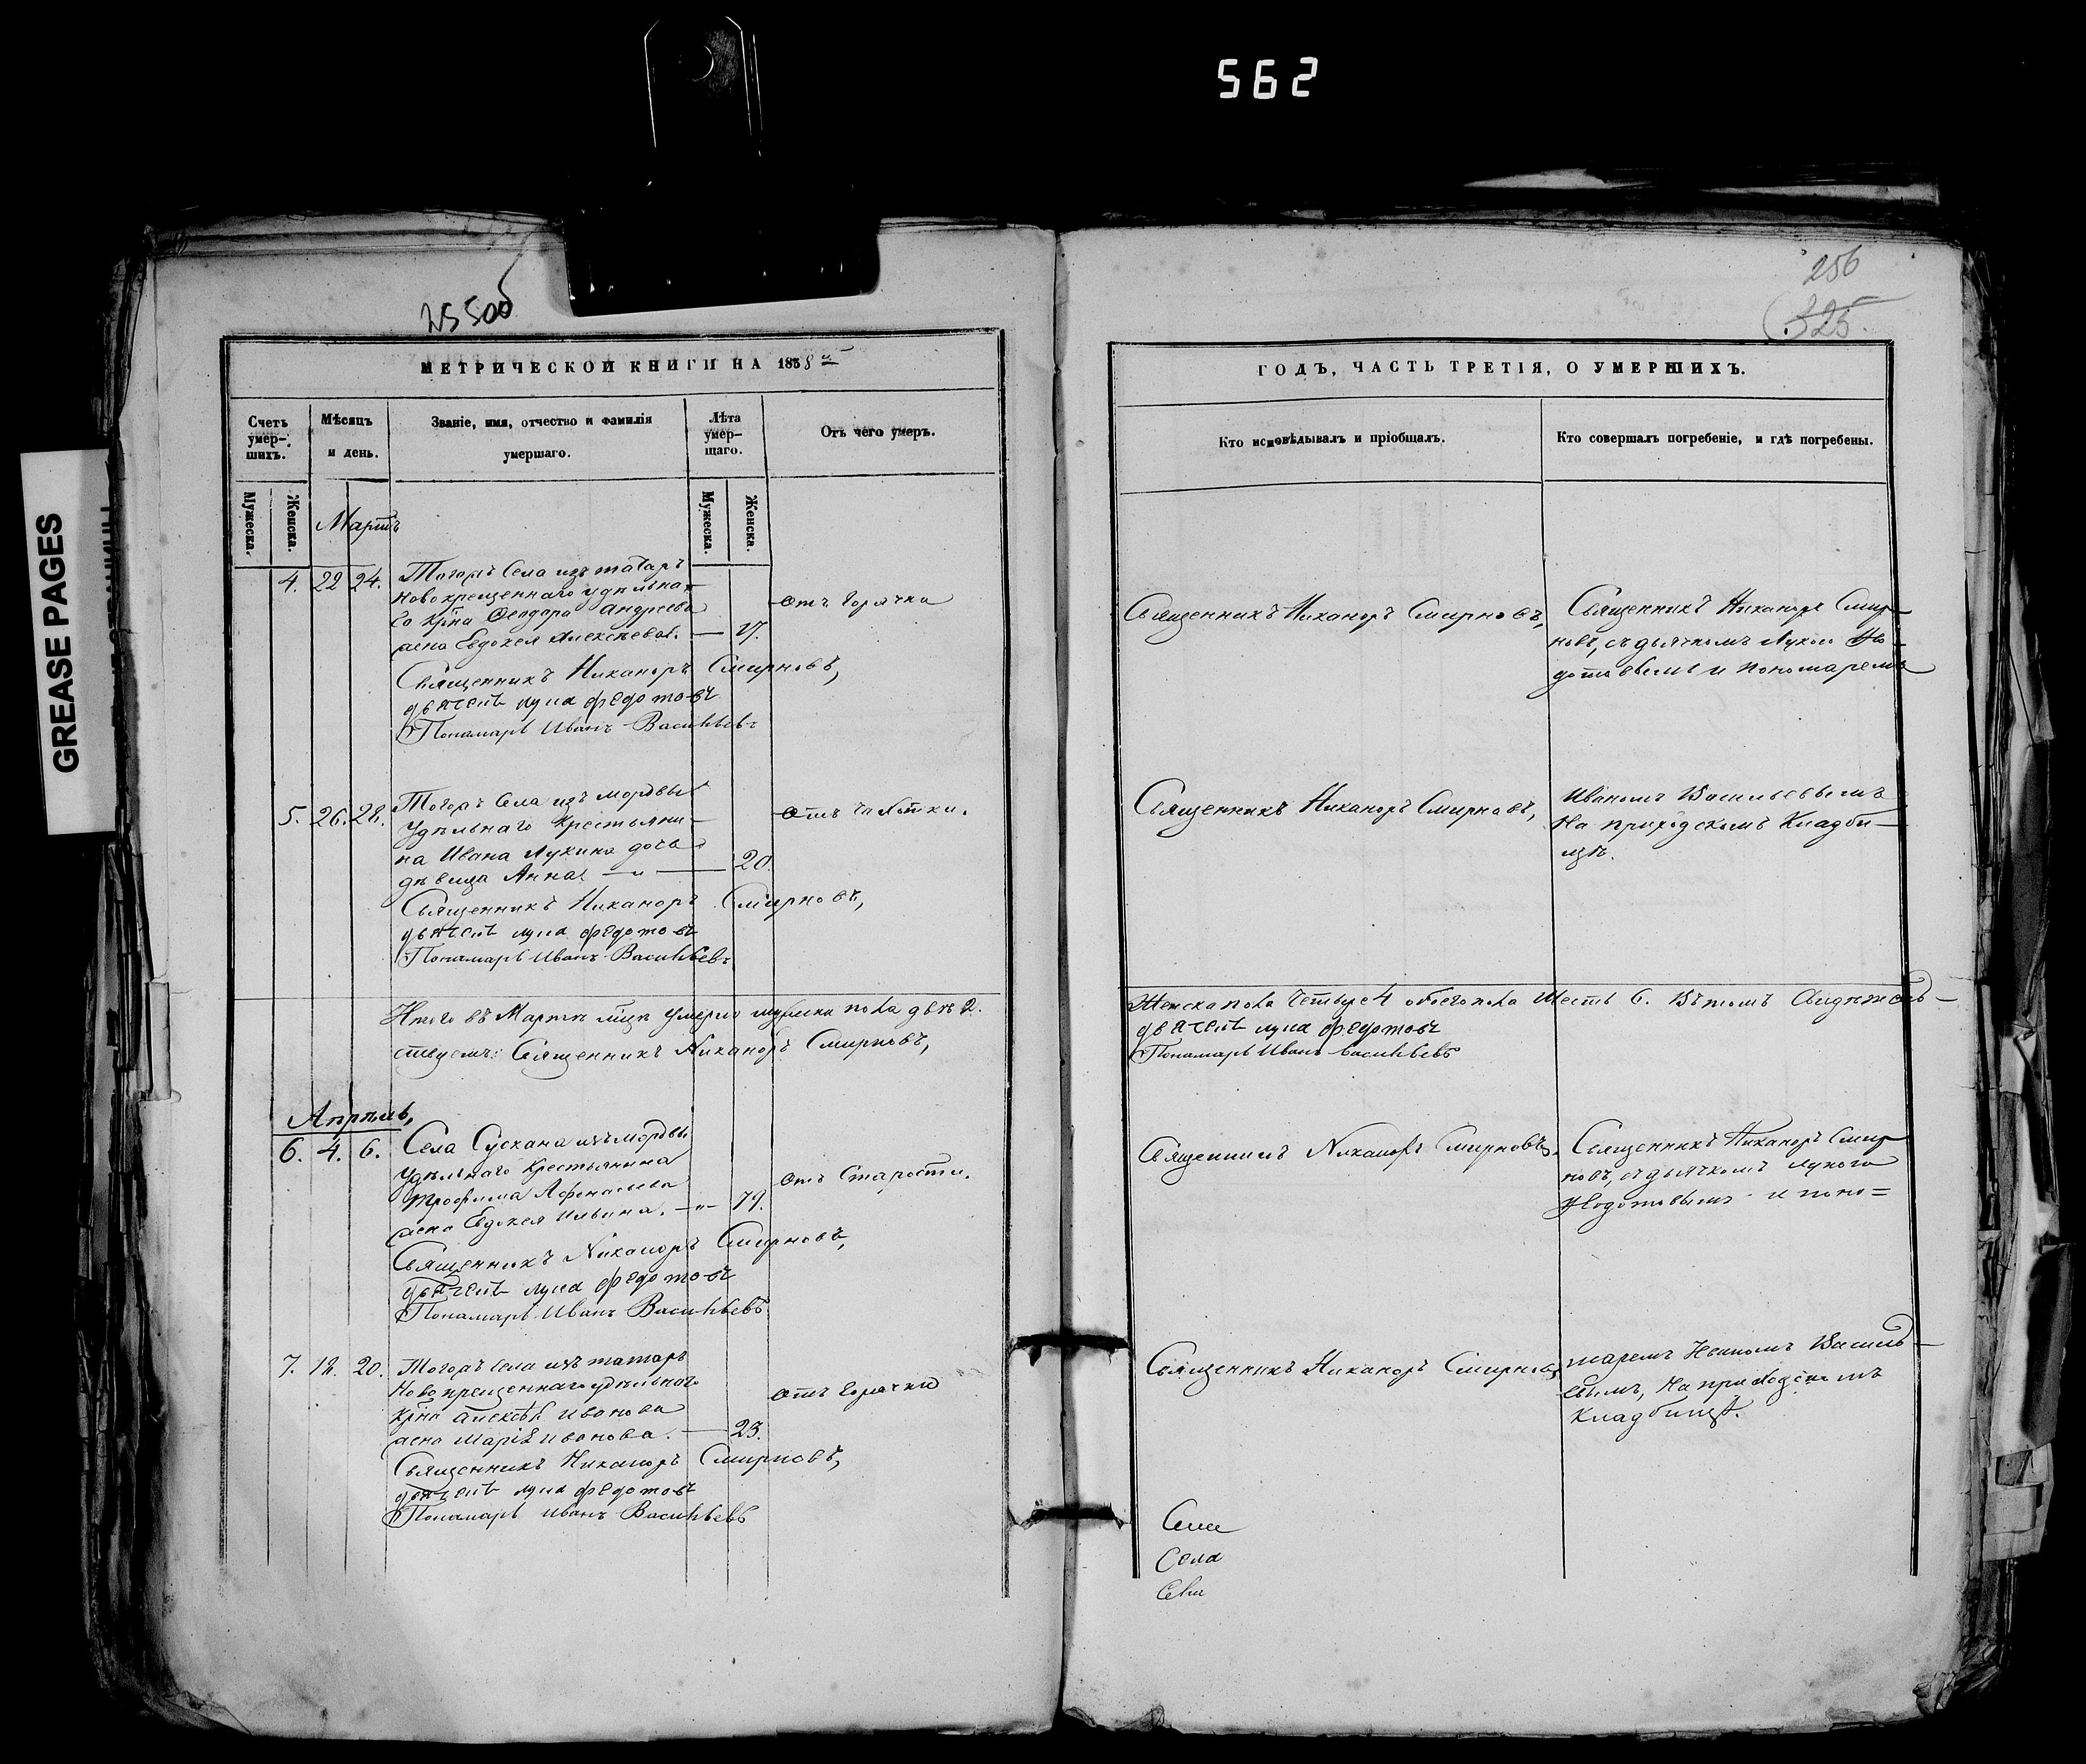 562
GREASE PAGES
255об
МЕТРИЧЕСКОЙ КНИГИ НА 1838й
Счетъ умер-
шихъ.
Мѣсяцъ
и день.
Званіе, имя, отчество и фамилія
умершаго.
Лѣта
умер-
шаго.
Отъ чего умеръ.
Мужеска.
Женска.
Мужеска.
Женска.
Мартъ
4. 22 24. Тогожъ Села изъ татаръ
новокрещеннаго удѣльна-
го крна Ѳеодора Андреева
жена Евдокея Алексѣева. —
отъ Горячки
Священникъ Никаноръ Смирновъ,
дьячекъ Лука Федотовъ
Пономарь Иванъ Васильевъ
5. 26. 28. Тогожъ Села изъ мордвы
Удѣльнаго Крестьяни-
на Ивана Лукина дочь
дѣвица Анна — 20.
отъ чахотки.
Священникъ Никаноръ Смирновъ,
дьячекъ Лука Федотовъ
Пономарь Иванъ Васильевъ
Итого въ Мартѣ мцѣ умерло мужеска пола двѣ 2.
ствуемъ: Священникъ Никаноръ Смирновъ,
Апрѣль,
6. 4. 6. Села Сускана изъ мордвы
Удѣльнаго Крестьянина
Трофима Афонасьева
жена Евдокея Ильина. — 79.
отъ Старости.
Священникъ Никаноръ Смирновъ,
дьячекъ Лука Федотовъ
Пономарь Иванъ Васильевъ
7. 18. 20. Тогожъ Села изъ татаръ
Новокрещеннаго удѣльнаго
крна Алексѣя Иванова
жена Марія Иванова. — 23.
отъ Горячки
Священникъ Никаноръ Смирновъ,
дьячекъ Лука Федотовъ
Пономарь Иванъ Васильевъ
256
325.
ГОДЪ, ЧАСТЬ ТРЕТІЯ, О УМЕРШИХЪ.
Кто исповѣдывалъ и пріобщалъ.
Кто совершалъ погребеніе, и гдѣ погребены.
Священникъ Никаноръ Смирновъ,
Священникъ Никаноръ Смир-
новъ, съ дьячкомъ Лукою Ѳе-
дотовымъ и пономаремъ
Священникъ Никаноръ Смирновъ,
Иваномъ Васильевымъ
На приходскомъ Кладби-
щѣ.
Женска пола четыре 4 обоего пола шесть 6. Въ томъ Свидѣтель-
дьячекъ Лука Федотовъ
Пономарь Иванъ Васильевъ
Священникъ Никаноръ Смирновъ,
Священникъ Никаноръ Смир-
новъ, съ дьячкомъ Лукою
Ѳедотовымъ и поно=
Священникъ Никаноръ Смирновъ,
маремъ Иваномъ Василь-
вымъ, На приходскомъ
Кладбищѣ.
Села